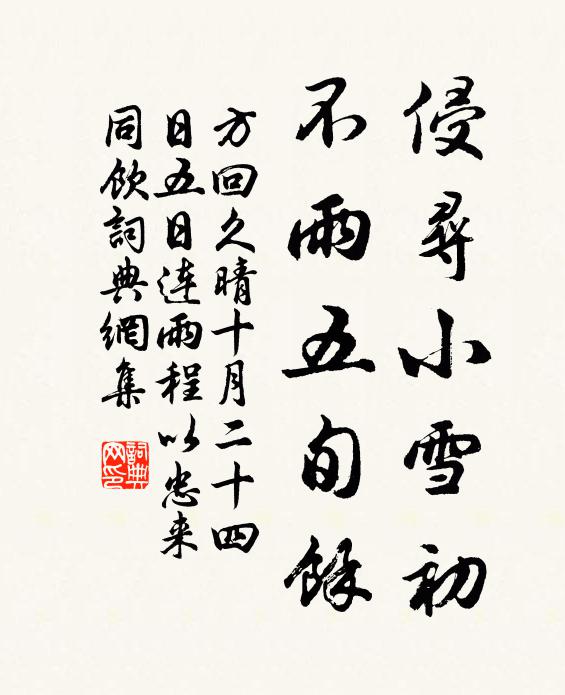 侵尋小雪初
不雨五旬餘
方回久晴十月二十四
日五日連雨程以忠来
同飲詞典網集
詞典网印